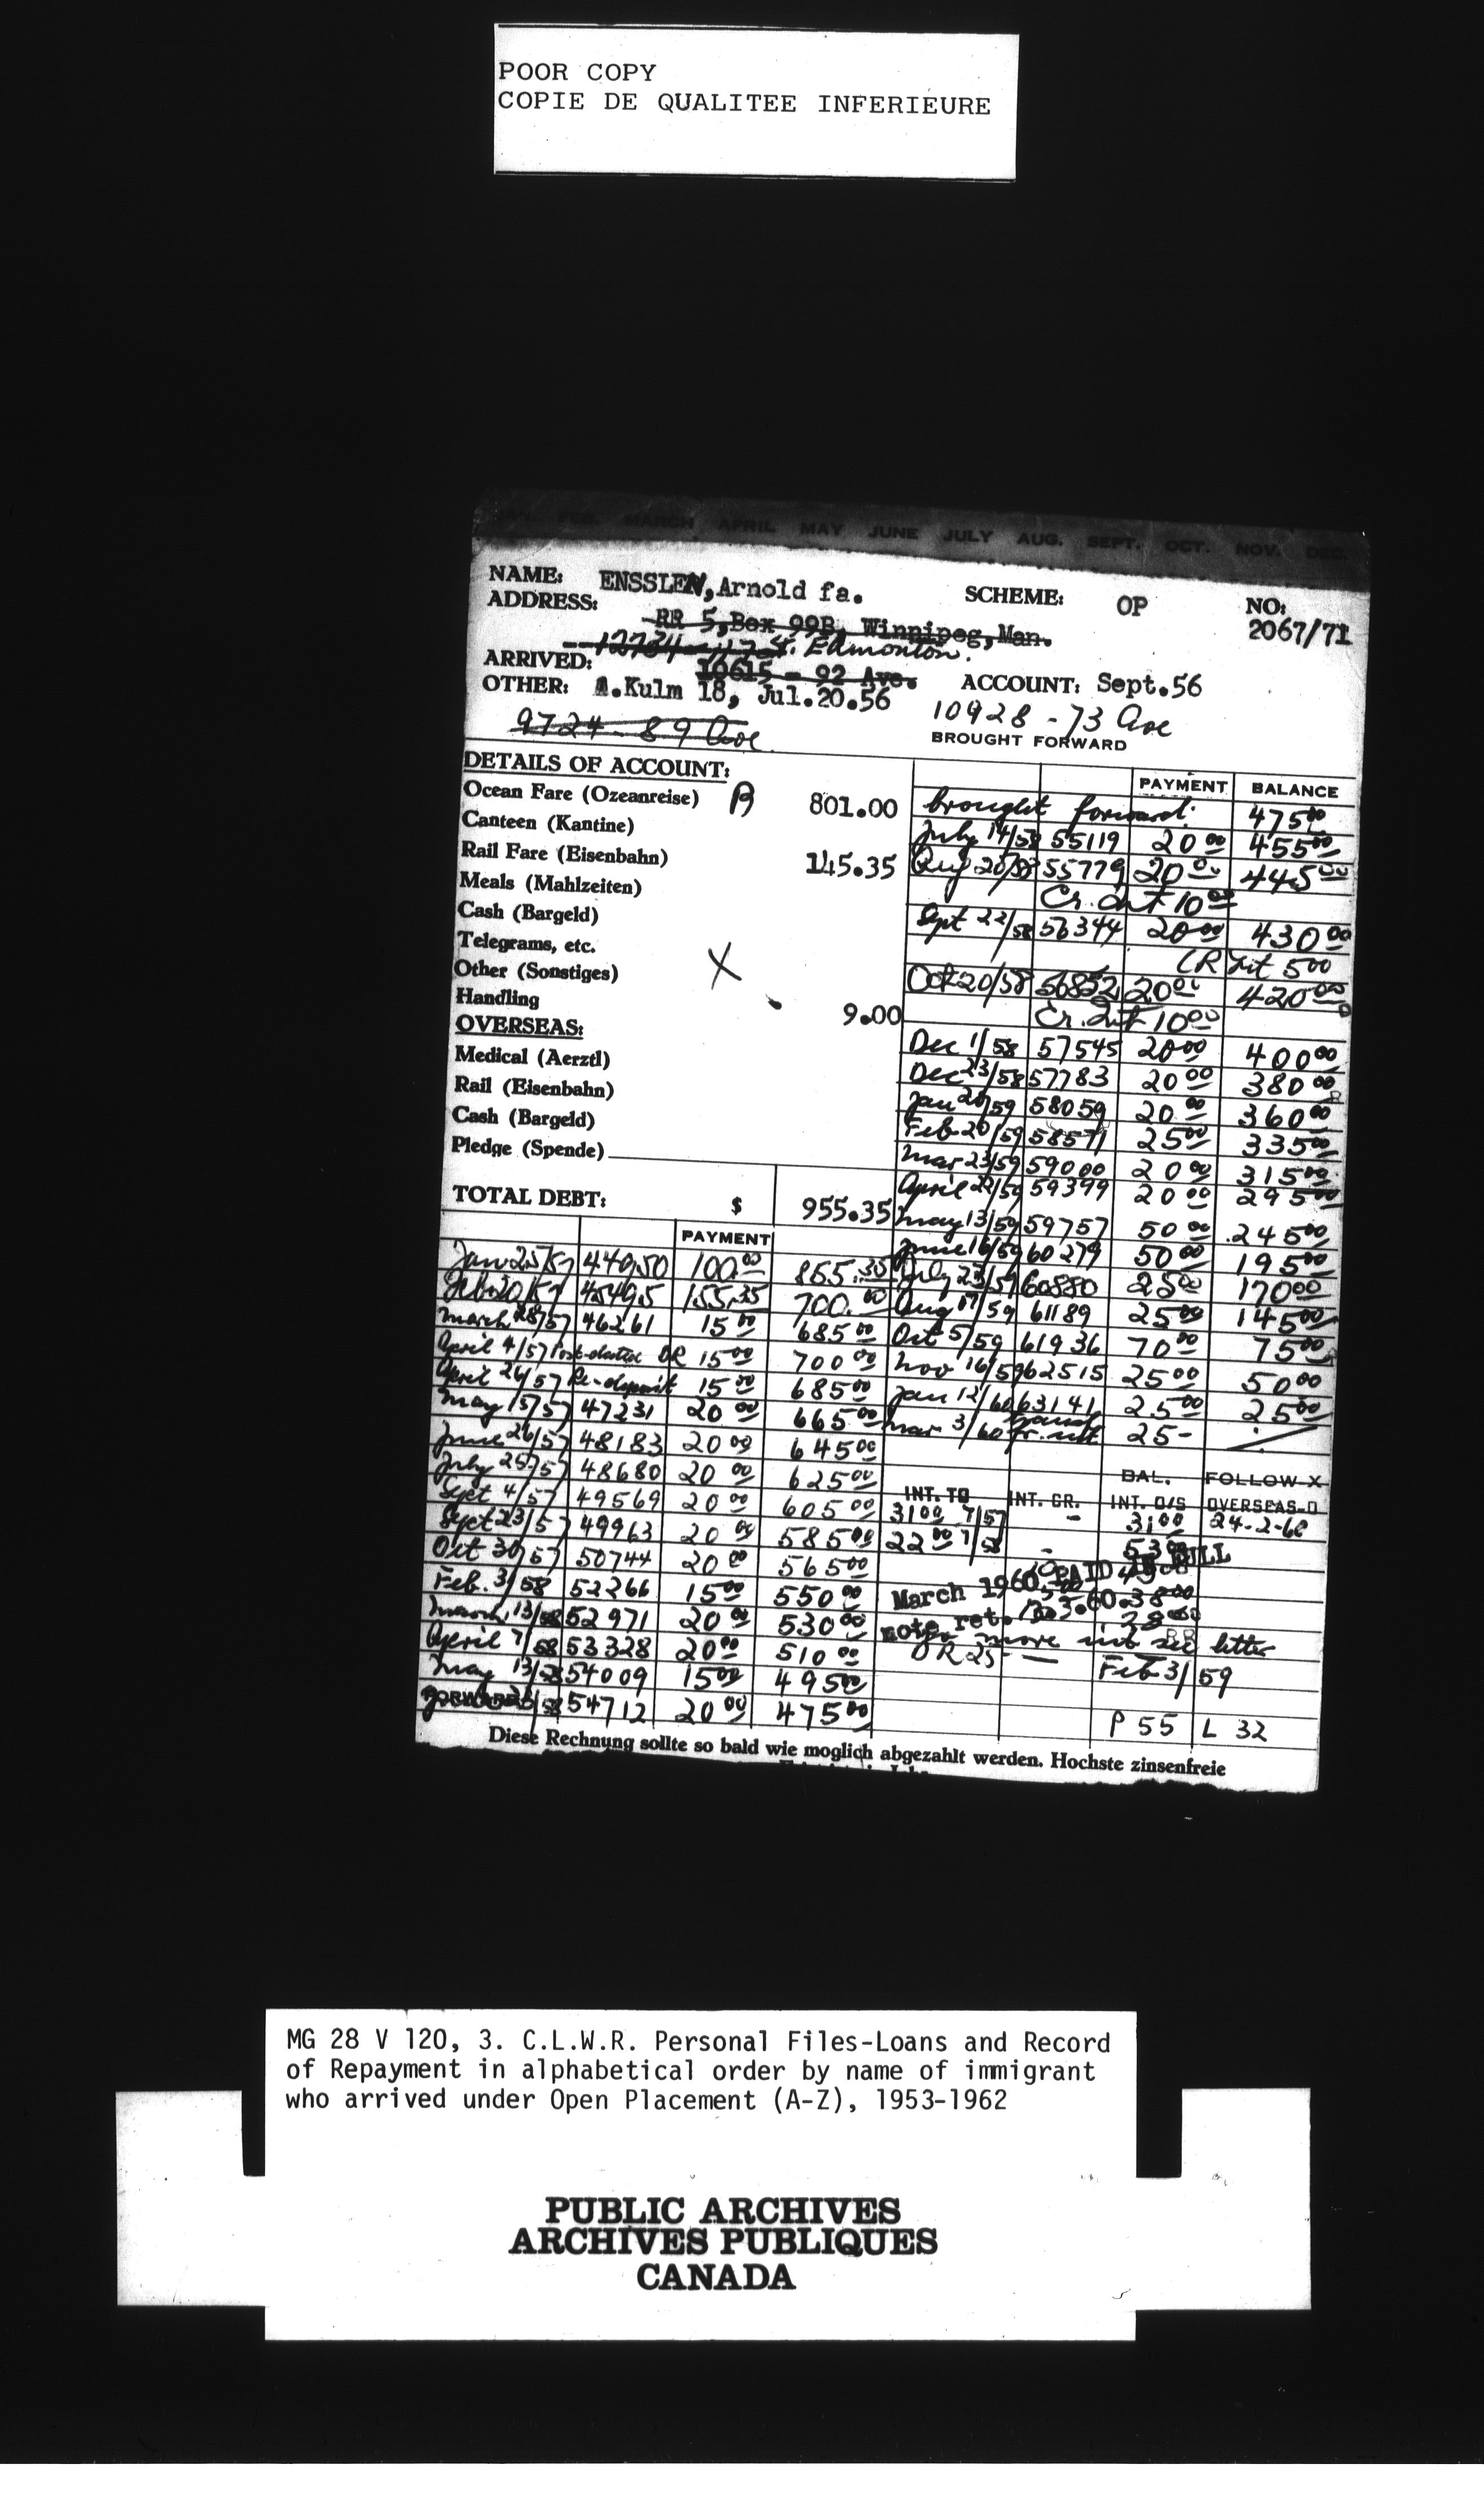 POOR COPY
COPIE DE QUALITEE INFERIEURE
JAN. FEB. MARCH APRIL MAY JUNE JULY AUG. SEPT. OCT. NOV. DEC.
NAME: ENSSLEN, Arnold fa. SCHEME: OP NO: 2067/71
ADDRESS: RR 5, Box 99B, Winnipeg, Man.
St. Edmonton.
ARRIVED: 10615 - 92 Ave. ACCOUNT: Sept.56
OTHER: A.Kulm 18, Jul.20.56 10928 - 73 Ave
9724 - 89 Ave.
BROUGHT FORWARD
DETAILS OF ACCOUNT:
Ocean Fare (Ozeanreise) B 801.00
Canteen (Kantine)
Rail Fare (Eisenbahn) 145.35
Meals (Mahlzeiten)
Cash (Bargeld)
Telegrams, etc.
Other (Sonstiges) X
Handling 9.00
OVERSEAS:
Medical (Aerztl)
Rail (Eisenbahn)
Cash (Bargeld)
Pledge (Spende)
TOTAL DEBT: $ 955.35
PAYMENT
Jan 25/57 44050 100.00 855.35
Feb 20/57 45495 155.35 700.00
March 28/57 46261 15 00 685 00
April 4/57 Post-dated DR 15 00 700 00
April 26/57 Re-deposit 15 00 685 00
May 15/57 47231 20 00 665 00
June 26/57 48183 20 00 645 00
July 25/57 48680 20 00 625 00
Sept 4/57 49569 20 00 605 00
Sept 23/57 49963 20 00 585 00
Oct 30/57 50744 20 00 565 00
Feb. 3/58 52266 15 00 550 00
March 13/58 52971 20 00 530 00
April 7/58 53328 20 00 510 00
May 13/58 54009 15 00 495 00
54712 20 00 475 00
PAYMENT BALANCE
brought forward: 475 00
July 14/58 55119 20 00 455 00
Aug 20/58 55779 20 00 445 00
Cr. Int 10 00
Sept 22/58 56344 20 00 430 00
CR Int 5 00
Oct 20/58 56852 20 00 420 00
Cr. Int 10 00
Dec 1/58 57545 20 00 400 00
Dec 23/58 57783 20 00 380 00
Jan 20/59 58059 20 00 360 00
Feb 20/59 58571 25 00 335 00
Mar 23/59 59000 20 00 315 00
April 22/59 59399 20 00 295 00
May 13/59 59757 50 00 245 00
June 16/59 60279 50 00 195 00
July 23/59 60880 25 00 170 00
Aug 17/59 61189 25 00 145 00
Oct 5/59 61936 70 00 75 00
Nov 16/59 62515 25 00 50 00
Jan 12/60 63141 25 00 25 00
Mar 3/60 25-
BAL. FOLLOW-X
INT. TO INT. CR. INT. O/S OVERSEAS-O
31 00 7/57 - 31 00 24-2-60
22 00 7/58 - 53 00
March 1960, PAID IN FULL
note ret.
no more int see letter
DR 25 - Feb 3/59
P 55 L 32
Diese Rechnung sollte so bald wie moglich abgezahlt werden. Hochste zinsenfreie
MG 28 V 120, 3. C.L.W.R. Personal Files-Loans and Record
of Repayment in alphabetical order by name of immigrant
who arrived under Open Placement (A-Z), 1953-1962
PUBLIC ARCHIVES
ARCHIVES PUBLIQUES
CANADA